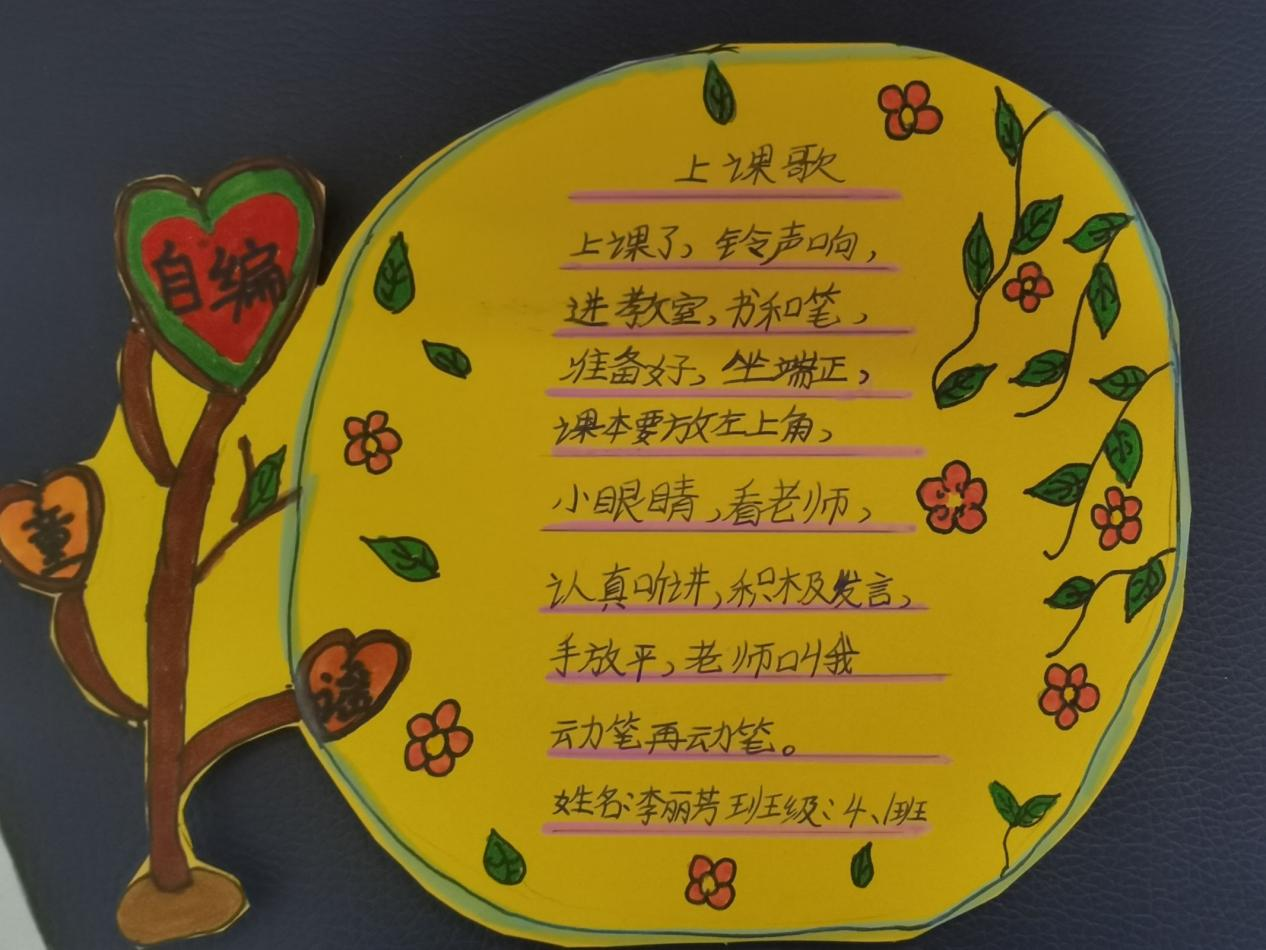 自编
童
谣
上课歌
上课了，铃声响，
进教室，书和笔，
准备好，坐端正，
课本要放左上角，
小眼睛，看老师，
认真听讲，积极发言，
手放平，老师叫我
动笔再动笔。
姓名：李丽芳 班级：4、1班